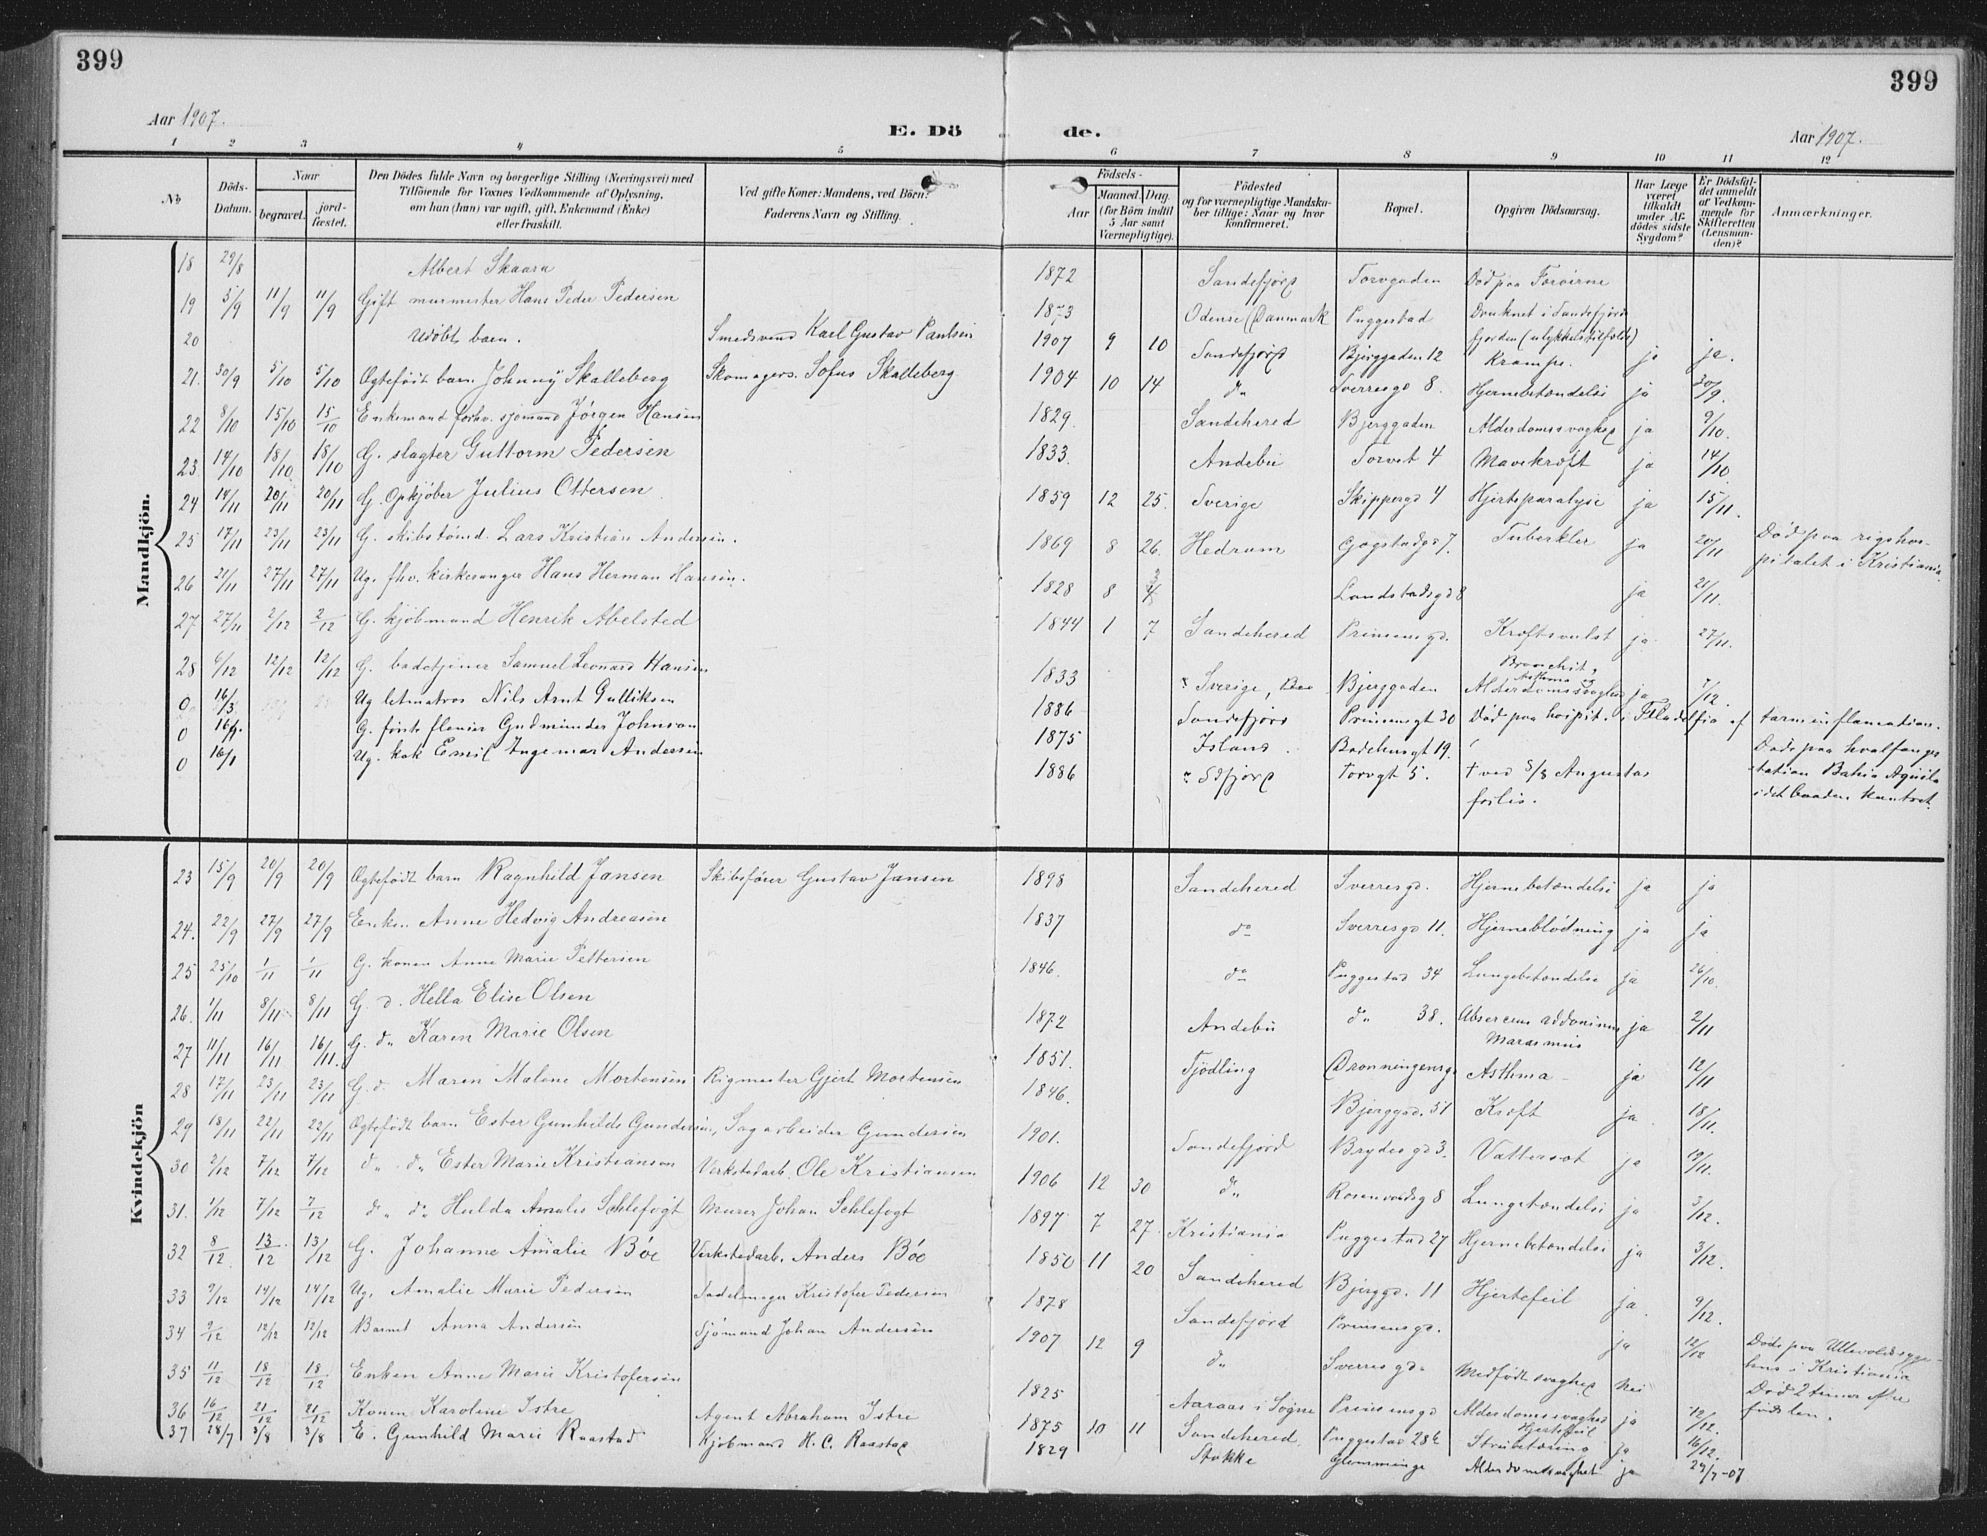 399
399
Aar 1907.
E. Dö
de.
Aar 1907.
1 2 3 4 5 6 7 8 9 10 11 12
No
Döds-Datum.
Naar
begravet.
jordfæstet.
Den Dödes fulde Navn og borgerlige Stilling (Næringsvei) med
Tilföiende for Voxnes Vedkommende af Oplysning,
om han (hun) var ugift, gift, Enkemand (Enke)
eller fraskilt.
Ved gifte Koner: Mandens, ved Börn:
Faderens Navn og Stilling.
Födsels-
Aar
Maaned. Dag.
(for Börn indtil
5 Aar samt
Værnepligtige).
Födested
og for værnepligtige Mandska-
ber tillige: Naar og hvor
konfirmeret.
Bopæl.
Opgiven Dödsaarsag.
Har Læge
været
tilkaldt
under Af-
dödes sidste
Sygdom?
Er Dödsfal-
det anmeldt
af Vedkom-
mende for
Skifteretten
(Lensman-
den)?
Anmærkninger.
Mandkjön.
18 29/8 Albert Skaara 1872 Sandefjord Torvgaden Död paa Færöerne
19 5/9 11/9 11/9 Gift murmester Hans Peder Pedersen 1873 Odense (Danmark Puggestad Druknet i Sandefjords
fjorden (ulykkelstilfælde)
20 Udöbt barn. Smedsvend Karl Gustav Paulsen 1907 9 10 Sandefjord Bjerggaden 12 Krampe. ja ja.
21. 30/9 5/10 5/10 Ogtefödt barn Johnny Skalleberg Skomagers. Sofus Skalleberg 1904 10 14 do Sverresgd 8. Hjernebetændelse ja 30/9.
22 8/10 15/10 15/10 Enkemand forhv. sjömand Jörgen Hansen 1829. Sandehered Bjerggaden Alderdomssvaghed ja 9/10.
23 14/10 18/10 18/10 G. slagter Guttorm Pedersen 1833. Andebu Torvet 4 Mavekræft ja 14/10
24 14/11 20/11 20/11 G. Opkjöber Julius Ottersen 1859 12 25. Sverige Skippergd 4 Hjerteparalyse ja 15/11.
25 17/11 23/11 23/11 G. skibstömd. Lars Kristian Andersen. 1869 8 26. Hedrum Gogstadgd 7. Tuberkler ja 20/11 Död paa rigshos-
pitalet i Kristiania.
26 21/11 27/11 27/11 Ug. fhv. kirkesanger Hans Herman Hansen. 1828 8 Landstadsgd 8 ja 21/11.
27 27/11 2/12 2/12 G. kjöbmand Henrik Abelsted 1844 1 7 Sandehered Prinsensgd. Kræftsvulst ja 27/11.
28 6/12 12/12 12/12 G. badetjener Samuel Leonard Hansen 1833 Sverige, Bjerggaden Bronchit,
Asthma og
Alderdomssvaghed ja 7/12.
0 16/3 Ug letmatros Nils Arnt Gulliksen 1886 Sandefjord Prinsensgt 30 Död paa hospit. i Filadelfia af tarminflamation.
0 16/9. G. Gudmundur Johnson 1875 Island. Badehusgt 19. Döde paa hvalfangs
tation Bahia Aguila
0 16/1 Ug. kok Emil Ingemar Andersen 1886 Sdfjord Torvgt 5. † ved 8/8 Augustas
forlis. idet baaden kantret.
Kvindekjön
23 15/9 20/9 20/9 Ogtefödt barn Ragnhild Jansen Skibsförer Gustav Jansen 1898 Sandehered Sverresgd. Hjernebetændelse ja ja
24. 22/9 27/9 27/9 Enken Anne Hedvig Andreasen 1837 do Sverresgd 11. Hjerneblödning ja ja
25 25/10 1/11 1/11 G. konen Anne Marie Pettersen 1846. do Puggestad 34 Lungebetændelse ja 26/10.
26. 1/11 8/11 8/11 G. d. Hella Elise Olsen 1872 Andebu do 38. Abscess addominus
Marasmus ja 2/11
27 11/11 16/11 16/11. G. do Karen Marie Olsen 1851. Tjödling Dronningensgd Asthma ja 12/11
28 17/11 23/11 23/11 G. d. Maren Malene Mortensen Rigmester Gjert Mortensen 1846. Bjerggd. 51 Kræft ja. 18/11.
29 18/11 22/11 22/11 Ogtefödt barn Ester Gunhilds Gundersen, Sagarbeider Gundersen 1901. Sandefjord Brydesgd 3. Vattersot ja 19/11.
30 2/12 7/12 7/12 do do Ester Marie Kristiansen Verkstedarb. Ole Kristiansen 1906 12 30 do Rosenvoldsg 8 Lungetændelse ja 3/12.
31. 1/12 7/12 7/12 do do Hulda Amalie Schlefogt Murer Johan Schlefogt 1897 7 27. Kristiania Puggestad 27 Hjernebetændelse ja 3/12.
32 8/12 13/12 13/12 G. Johanne Amalie Böe Verkstedarb. Anders Böe 1850 11 20 Sandehered Bjerggd. 11 Hjertefeil ja. 9/12.
33 9/12 14/12 14/12 Ug. Amalie Marie Pedersen Sadelmager Kristofer Pedersen 1878 Sandefjord Prinsensgd. ja 12/12 Döde paa Ullevoldssyge-
hus i Kristiania
34 9/12 12/12 12/12 Barnet Anna Andersen Sjömand Johan Andersen 1907 12 9 do Sverresgd. Medfödt svaghed nei Död 2 timer efter
födslen.
35 11/12 18/12 18/12 Enken Anne Marie Kristofersen 1825 Aaraas i Sogne Prinsensgd Alderdomssvaghed ja 12/12.
36 16/12 21/12 21/12 Konen Karoline Istre Agent Abraham Istre 1875 10 11 Sandehered. Puggestad 28b Hjertefeil
Strubetæring ja 16/12.
37 28/7 3/8 3/8 E. Gunhild Marie Raastad Kjöbmand H. C. Raastad 1829 Stokke Glemminge Alderdomssvaghet ja 29/7-07